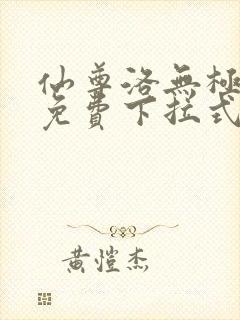 仙尊洛無極
免費下拉式
黄愷杰